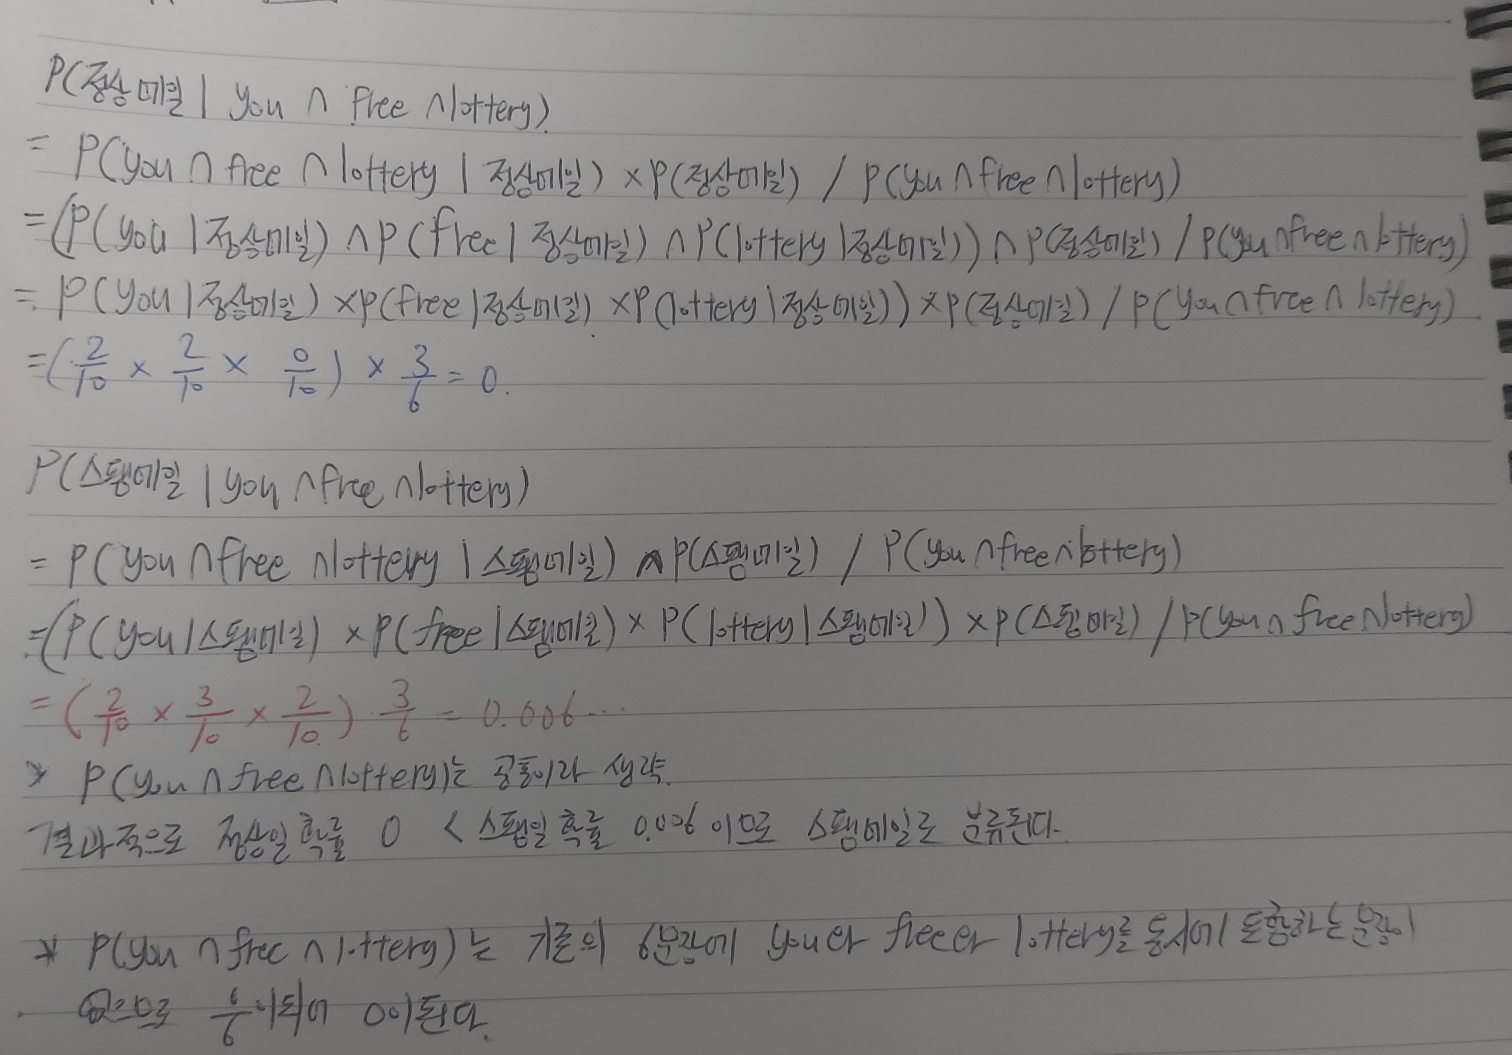 P(정상메일 | you ∩ free ∩ lottery)
= P(you ∩ free ∩ lottery | 정상메일) × P(정상메일) / P(you ∩ free ∩ lottery)
= (P(you | 정상메일) ∩ P(free | 정상메일) ∩ P(lottery | 정상메일)) ∩ P(정상메일) / P(you ∩ free ∩ lottery)
= P(you | 정상메일) × P(free | 정상메일) × P(lottery | 정상메일)) × P(정상메일) / P(you ∩ free ∩ lottery)
= (2/10 × 2/10 × 0/10) × 3/6 = 0.
P(스팸메일 | you ∩ free ∩ lottery)
= P(you ∩ free ∩ lottery | 스팸메일) ∩ P(스팸메일) / P(you ∩ free ∩ lottery)
= (P(you | 스팸메일) × P(free | 스팸메일) × P(lottery | 스팸메일)) × P(스팸메일) / P(you ∩ free ∩ lottery)
= (2/10 × 3/10 × 2/10) · 3/6 = 0.006...
* P(you ∩ free ∩ lottery)는 공통이라 생략.
결과적으로 정상일 확률 0 < 스팸일 확률 0.006 이므로 스팸메일로 분류된다.
* P(you ∩ free ∩ lottery)는 기존의 6문장에 you와 free와 lottery를 동시에 포함하는 문장이
없으므로 0/6이되어 0이된다.